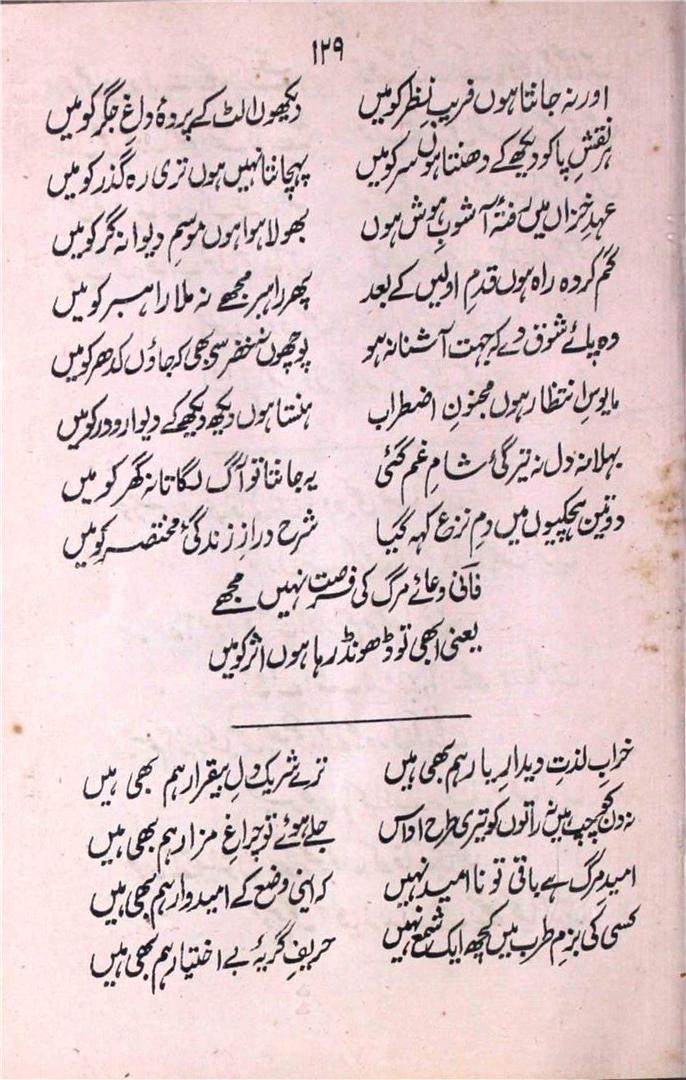 ۱۲۹
اور نہ جانتا ہوں فریبِ نظر کو میں دیکھوں الٹ کے پردۂ داغِ جگر کو میں
ہر نقشِ پا کو دیکھ کے دھنتا ہوں سر کو میں پہچانتا نہیں ہوں تری رہ گذر کو میں
عہدِ خزاں میں رفتۂ آشوبِ ہوش ہوں بھولا ہوا ہوں موسمِ دیوانہ گر کو میں
گم کردہ راہ ہوں قدمِ اولیں کے بعد پھر راہبر مجھے نہ ملا راہبر کو میں
وہ پائے شوق دے کہ جہت آشنا نہ ہو پوچھوں نہ خضر سے بھی کہ جاؤں کدھر کو میں
مایوسِ انتظار ہوں مجنونِ اضطراب ہنستا ہوں دیکھ دیکھ کے دیوار و در کو میں
بہلا نہ دل نہ تیرگیٔ شامِ غم گئی یہ جانتا تو آگ لگاتا نہ گھر کو میں
دو تین ہچکیوں میں دمِ نزع کہہ گیا شرحِ درازِ زندگیٔ مختصر کو میں
فانی دعائے مرگ کی فرصت نہیں مجھے
یعنی ابھی تو ڈھونڈ رہا ہوں اثر کو میں
خرابِ لذتِ دیدارِ یار ہم بھی ہیں ترے شریک دلِ بیقرار ہم بھی ہیں
نہ دن کو چپ ہیں نہ راتوں کو تیری طرح اداس جلے ہوئے تو چراغِ مزار ہم بھی ہیں
امیدِ مرگ ہے باقی تو نا امید نہیں کہ اپنی وضع کے امیدوار ہم بھی ہیں
کسی کی بزمِ طرب میں کچھ ایک شمع نہیں حریفِ گریۂ بے اختیار ہم بھی ہیں